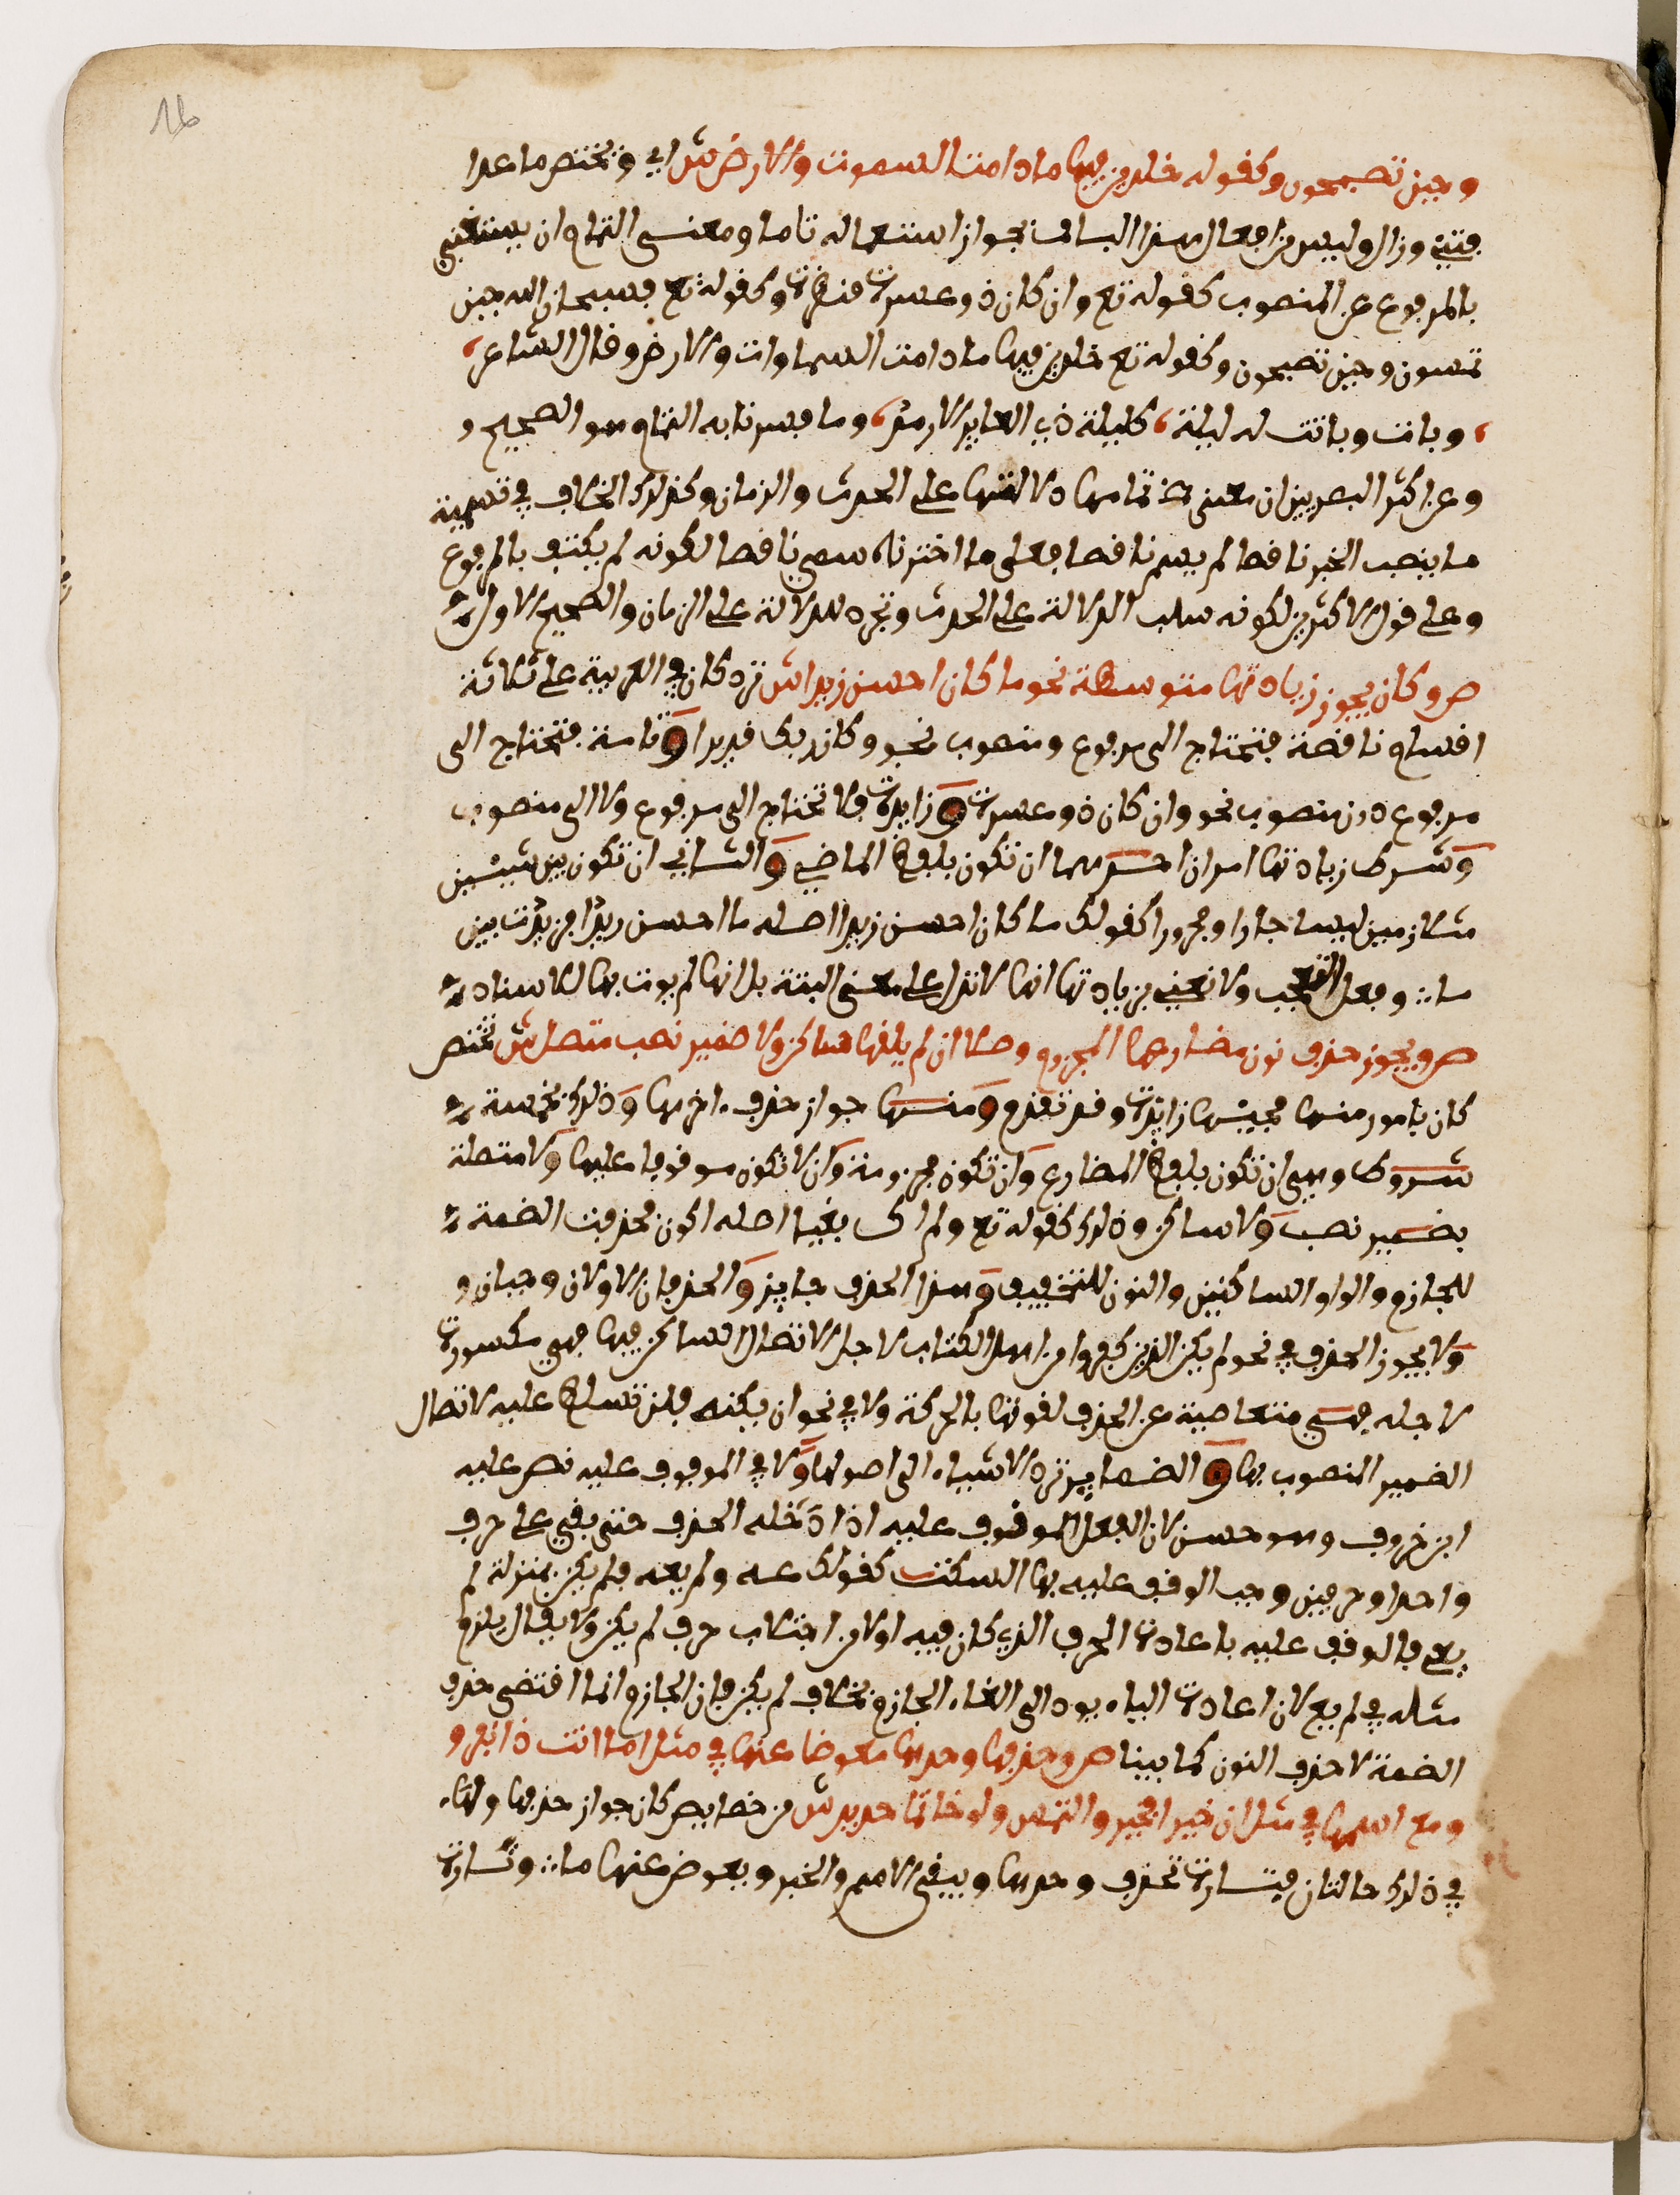 وحين تصبحون وكقوله خلدين فيها ما دامت السموت والارض ش اي ويختص ما عدا
فتئ وزال وليس من افعال هذا الباب بجواز استعماله تاما ومعنى التمام ان يستغني
بالمرفوع عن المنصوب كقوله تع وان كان ذو عسرة فنظرة وكقوله تع فسبحان الله حين
تمسون وحين تصبحون وكقوله تع خلدين فيها ما دامت السماوات والارض وقال الشاعر
وبات وباتت له ليلة كليلة ذي العاير الارمد وما فسرنا به التمام هو الصحيح و
وعن اكثر البصريين ان معنى تمامها دلالتها على الحدث والزمان وكذلك الخلاف في تسمية
ما ينصب الخبر ناقصا لم يسم ناقصا فعلى ما اخترناه سمي ناقصا لكونه لم يكتف بالمرفوع
وعلى قول الاكثرين لكونه سلب الدلالة على الحدث وتجرد للدلالة على الزمان والصحيح الاول
ص وكان يجوز زيادتها متوسطة نحو ما كان احسن زيدا ش ترد كان في العربية على ثلاثة
اقسام ناقصة فتحتاج الى مرفوع ومنصوب نحو وكان ربك قديرا وتامة فتحتاج الى
مرفوع دون منصوب نحو وان كان ذو عسرة وزايدة فلا تحتاج الى مرفوع ولا الى منصوب
وشرط زيادتها امران احدهما ان تكون بلفظ الماضي والثاني ان تكون بين شيئين
متلازمين ليسا جارا ومجرورا كقولك ما كان احسن زيدا اصله ما احسن زيدا فزيدت بين
ما وفعل التعجب ولا نعني بزيادتها انها لا تدل على معنى البتة بل انها لم يوت بها للاسناد
ص ويجوز حذف نون مضارعها المجزوم وصلا ان لم يلقها ساكن ولا ضمير نصب متصل ش تختص
كان بامور منها مجيئها زائدة وقد تقدم ومنها جواز حذف اخرها وذلك بخمسة
شروط وهي ان تكون بلفظ المضارع وان تكون مجزومة وان لا تكون موقوفا عليها ولا متصلة
بضمير نصب ولا ساكن وذلك كقوله تع ولم اك بغيا اصله اكون فحذفت الضمة
للجازم والواو الساكنين والنون للتخفيف وهذا الحذف جايز والحذفان الاولان وجبان و
ولا يجوز الحذف في نحو لم يكن الذين كفروا من اهل الكتاب لاجل الاتصال الساكن فيها فهي مكسورة
لاجله فهي متعاصية عن الحذف لقوتها بالحركة ولا في نحو ان يكنه فلن تسلط عليه لاتصال
الضمير المنصوب بها والضماير ترد الاشياء الى اصولها ولا في الموقوف عليه نص عليه
ابن خروف وهو حسن لان الفعل الموقوف عليه اذا دخله الحذف حتى بقي على حرف
واحد او حرفين وجب الوقف عليه بها السكت كقولك عه ولم يعه فلم يكن بمنزلة لم
يع فالوقف عليه باعادة الحرف الذي كان فيه اولا من اجتلاب حرف لم يكن ولا يقال يلزم
مثله في لم يع لان اعادة الياء يود الى الغاء الجازم بخلاف لم يكن فان الجازم انما اقتضى حذف
الضمة لا حذف النون كما بينا ص وحذفها وحدها معوضا عنها في مثل اما انت ذا نفر و
ومع اسمها في مثل ان خيرا فخير والتمس ولو خاتما حديد ش من خصايص كان جواز حذفها ولها
في ذلك حالتان فتارة تحذف وحدها ويبقى الاسم والخبر ويعوض عنها ما وتارة